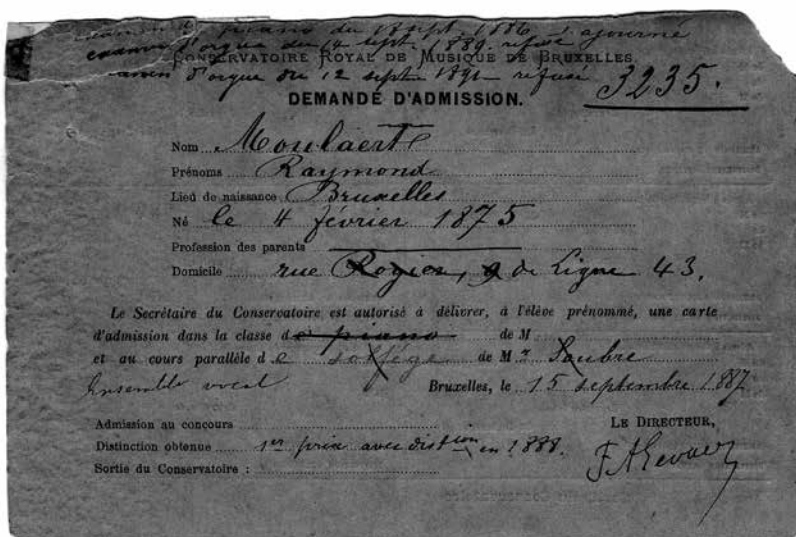 examen de piano du 13 sept 1886 : ajourné
examen d'orgue du 14 sept. 1889. refusé
CONSERVATOIRE ROYAL DE MUSIQUE DE BRUXELLES.
examen d'orgue du 12 sept 1891 refusé
3235.
DEMANDE D'ADMISSION.
Nom Moulaert
Prénoms Raymond
Lieu de naissance Bruxelles
Né le 4 février 1875
Profession des parents
Domicile rue Rogier, 9 de Ligne 43.
Le Secrétaire du Conservatoire est autorisé à délivrer, à l'élève prénommé, une carte
d'admission dans la classe de piano de M
et au cours parallèle de solfège de Mr Soubre
Ensemble vocal Bruxelles, le 15 septembre 1887
Admission au concours
LE DIRECTEUR,
Distinction obtenue 1er prix avec distion en 1888.
Sortie du Conservatoire :
F A Gevaert